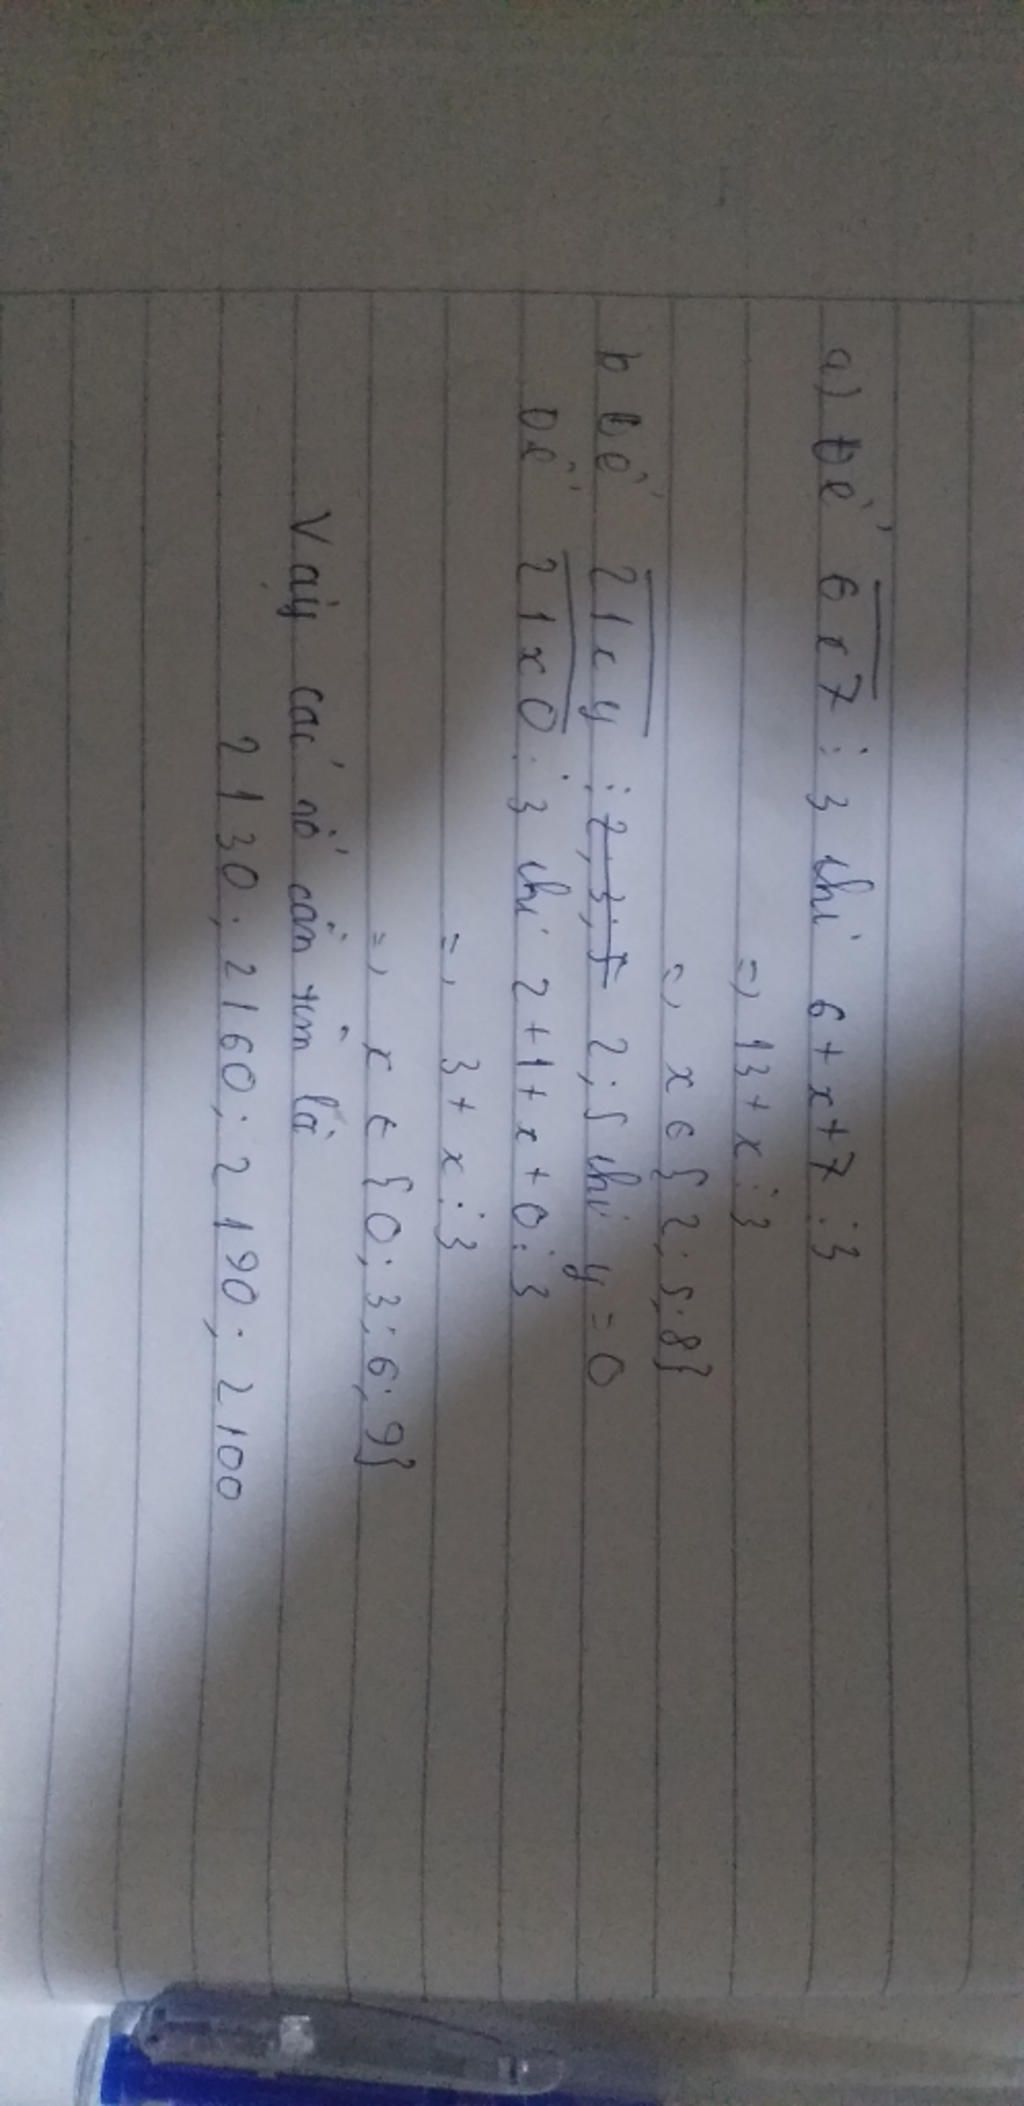 a) Để 6x7 ⋮ 3 thì 6+x+7 ⋮ 3
=> 13+x ⋮ 3
=> x ∈ {2;5;8}
b Để 21xy ⋮ 2;3;5 2;5 thì y=0
Để 21x0 ⋮ 3 thì 2+1+x+0 ⋮ 3
=> 3+x ⋮ 3
=> x ∈ {0;3;6;9}
Vậy các số cần tìm là
2130; 2160; 2190; 2100